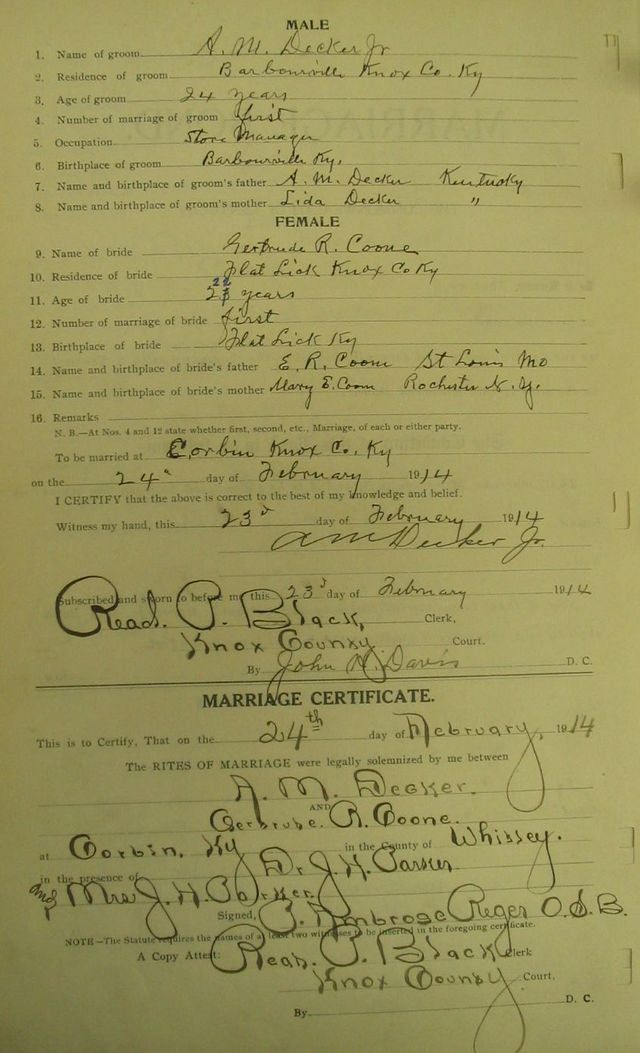 MALE
1. Name of groom A. M. Decker Jr
2. Residence of groom Barbourville Knox Co. Ky
3. Age of groom 24 years
4. Number of marriage of groom first
5. Occupation Store Manager
6. Birthplace of groom Barbourville Ky.
7. Name and birthplace of groom's father A. M. Decker Kentucky
8. Name and birthplace of groom's mother Lida Decker "
FEMALE
9. Name of bride Gertrude R. Coone
10. Residence of bride Flat Lick Knox Co Ky
11. Age of bride 22 years
12. Number of marriage of bride first
13. Birthplace of bride Flat Lick Ky
14. Name and birthplace of bride's father E. R. Coone St Louis Mo
15. Name and birthplace of bride's mother Mary E. Coon Rochester N. Y.
16. Remarks
N. B.—At Nos. 4 and 12 state whether first, second, etc., Marriage, of each or either party.
To be married at Corbin Knox Co. Ky
on the 24th day of February 1914
I CERTIFY that the above is correct to the best of my knowledge and belief.
Witness my hand, this 23d day of February 1914
A M Decker Jr.
Subscribed and sworn to before me this 23d day of February 1914
Read. P. Black, Clerk,
Knox County Court.
By John H. Davis D. C.
MARRIAGE CERTIFICATE.
This is to Certify, That on the 24th day of February, 1914
The RITES OF MARRIAGE were legally solemnized by me between
A. M. Decker.
AND
Gertrude. R. Coone.
at Corbin, Ky in the County of Whitley.
in the presence of Dr. J. H. Parker
and Mrs J. H. Parker
Signed, P. Ambrose Reger O.S.B.
NOTE—The Statute requires the names of at least two witnesses to be inserted in the foregoing certificate.
A Copy Attest: Read. P. Black Clerk
Knox County Court,
By D. C.